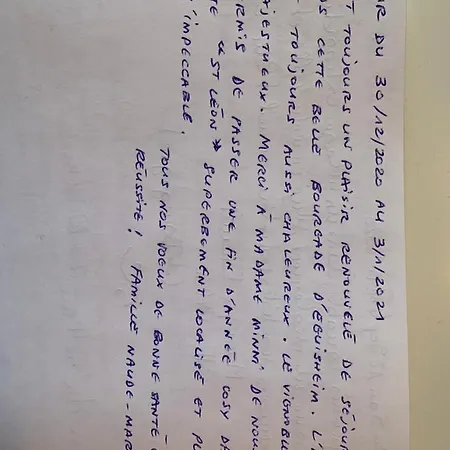 R DU 30/12/2020 AU 3/1/2021
T TOUJOURS UN PLAISIR RENOUVELÉ DE SÉJOUR
S CETTE BELLE BOURGADE D'EGUISHEIM. L'
TOUJOURS AUSSI CHALEUREUX. LE VIGNOBLE
JESTUEUX. MERCI À MADAME MINNI DE NOUS
RMIS DE PASSER UNE FIN D'ANNÉE COSY DA
TE "ST LÉON" SUPERBEMENT LOCALISÉ ET PL
'IMPECCABLE.
TOUS NOS VOEUX DE BONNE SANTÉ
RÉUSSITE! FAMILLE NAUDE-MAR